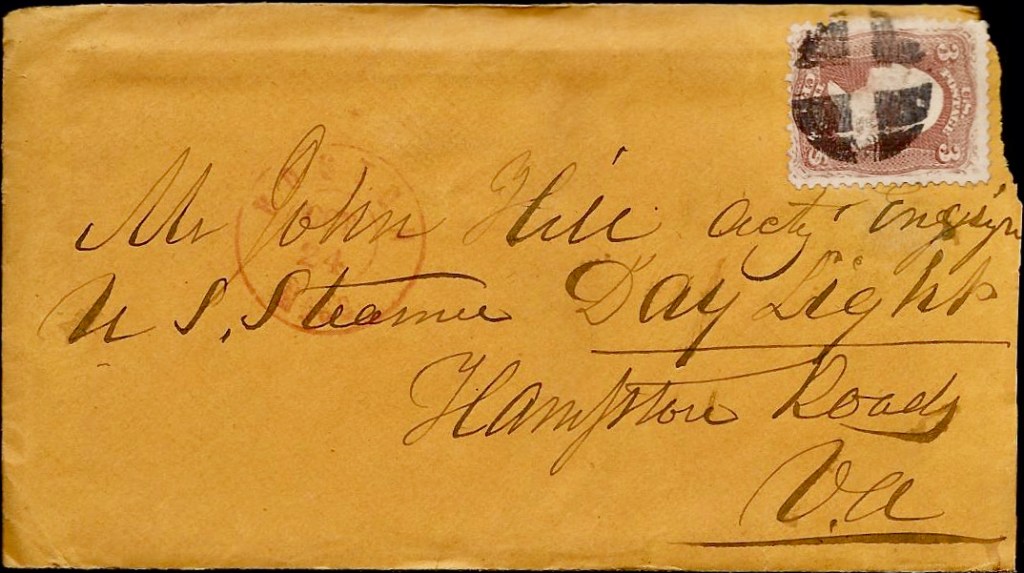 Mr John Hill acty Ensign
U S, Steamer Day Light
Hampton Roads
V.a
3 3
24